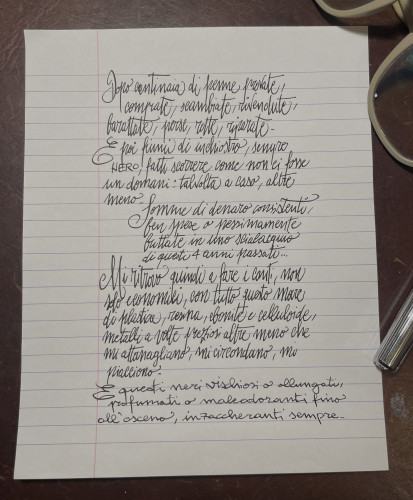 Dopo centinaia di penne provate,
comprate, scambiate, rivendute,
barattate, perse, rotte, riparate-
E poi fiumi di inchiostro, sempre
NERO, fatti scorrere come non ci fosse
un domani: talvolta a caso, altre
meno.
Somme di denaro consistenti,
ben spese o pessimamente
buttate in uno scialacquio
di questi 4 anni passati...
Mi ritrovo quindi a fare i conti, non
solo economici, con tutto questo mare
di plastica, resina, ebanite e celluloide,
metalli a volte preziosi altre meno che
mi attanagliano, mi circondano, mi
piacciono.
E questi neri vischiosi o allungati,
profumati o maleodoranti fino
all'osceno, inzaccheranti sempre-